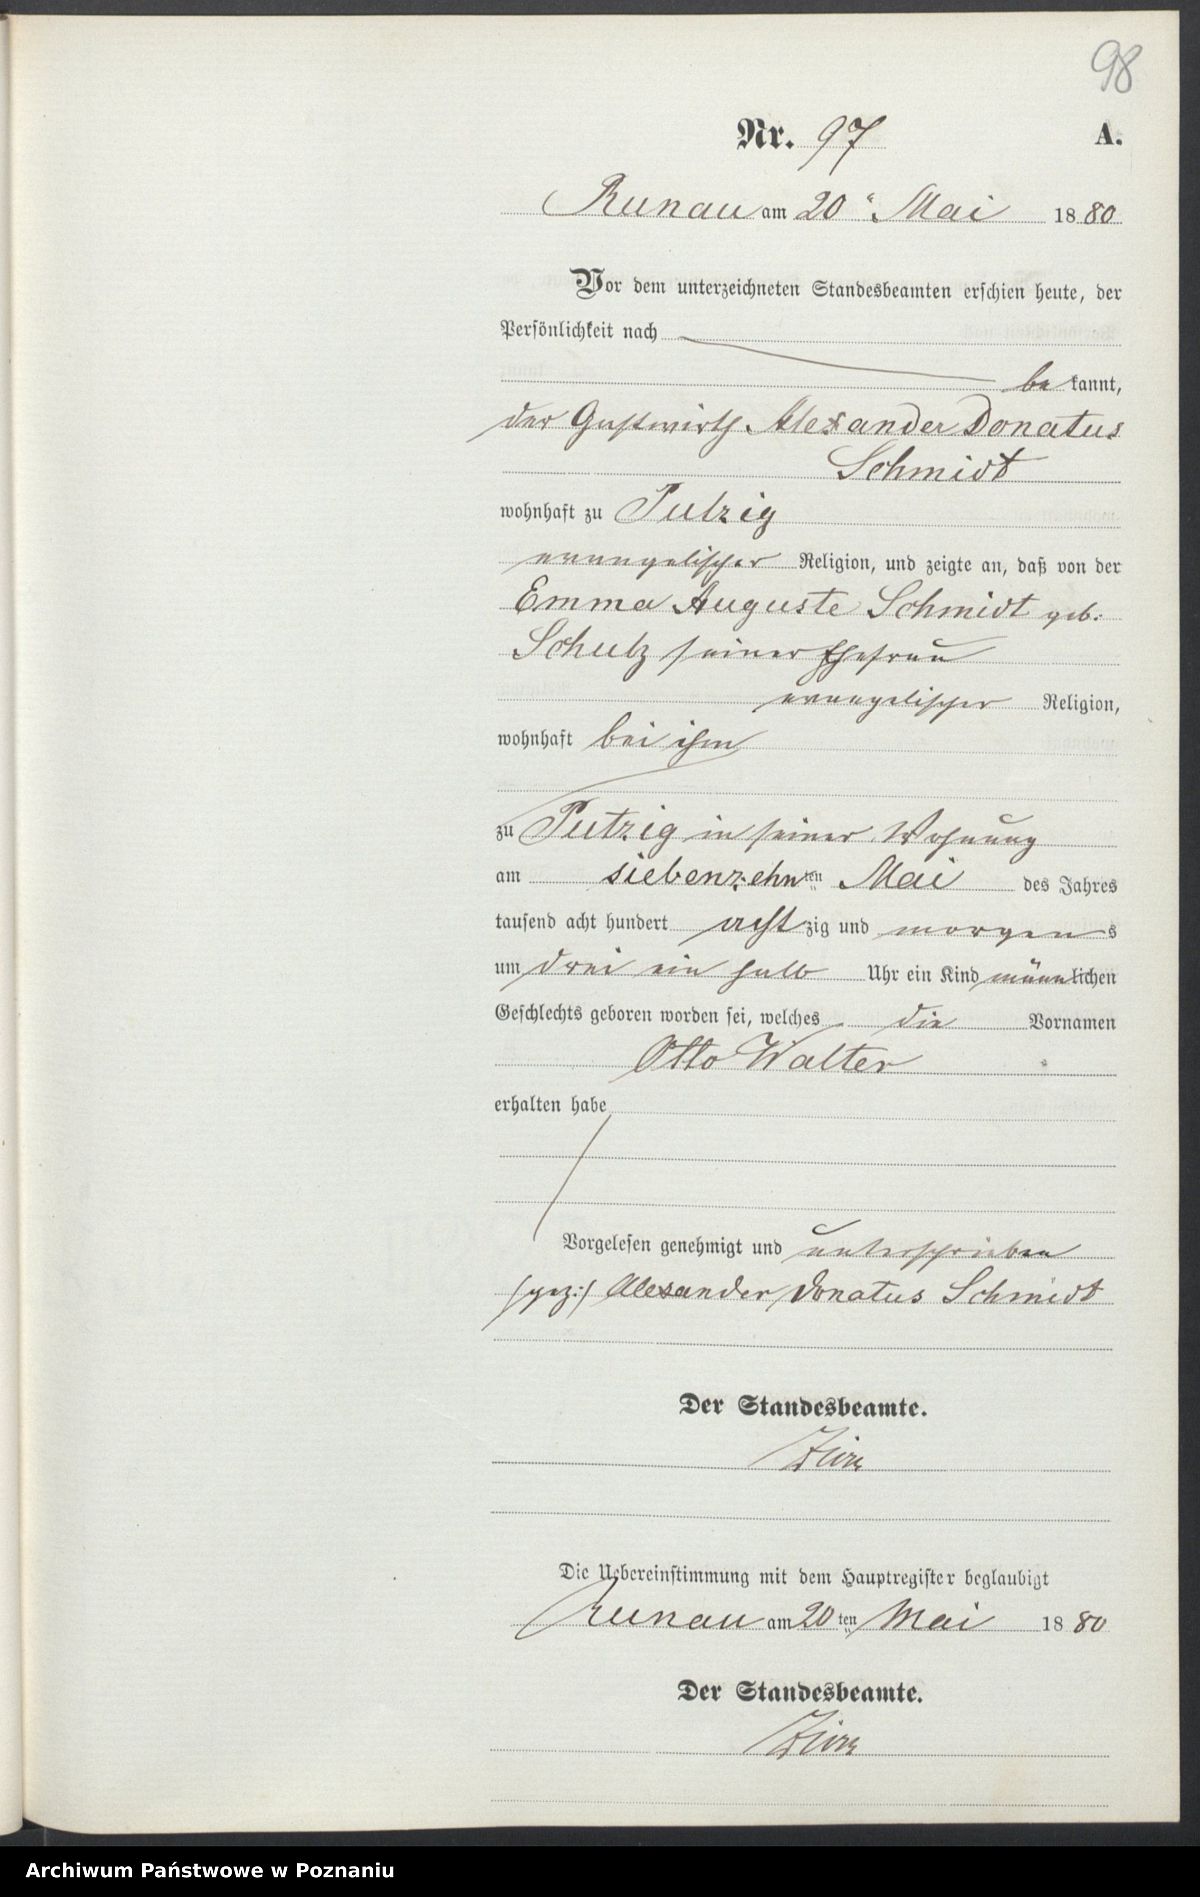 98
Nr. 97 A.
Runau am 20ten Mai 1880
Vor dem unterzeichneten Standesbeamten erschien heute, der
Persönlichkeit nach
bekannt,
der Gastwirth Alexander Donatus
Schmidt
wohnhaft zu Putzig
evangelischer Religion, und zeigte an, daß von der
Emma Auguste Schmidt geb.
Schulz seiner Ehefrau
evangelischer Religion,
wohnhaft bei ihm
zu Putzig in seiner Wohnung
am siebenzehnten Mai des Jahres
tausend acht hundert achtzig und morgens
um drei ein halb Uhr ein Kind männlichen
Geschlechts geboren worden sei, welches die Vornamen
Otto Walter
erhalten habe
Vorgelesen genehmigt und unterschrieben
(gez:) Alexander Donatus Schmidt
Der Standesbeamte.
Die Uebereinstimmung mit dem Hauptregister beglaubigt
Runau am 20ten Mai 1880
Der Standesbeamte.
Archiwum Państwowe w Poznaniu